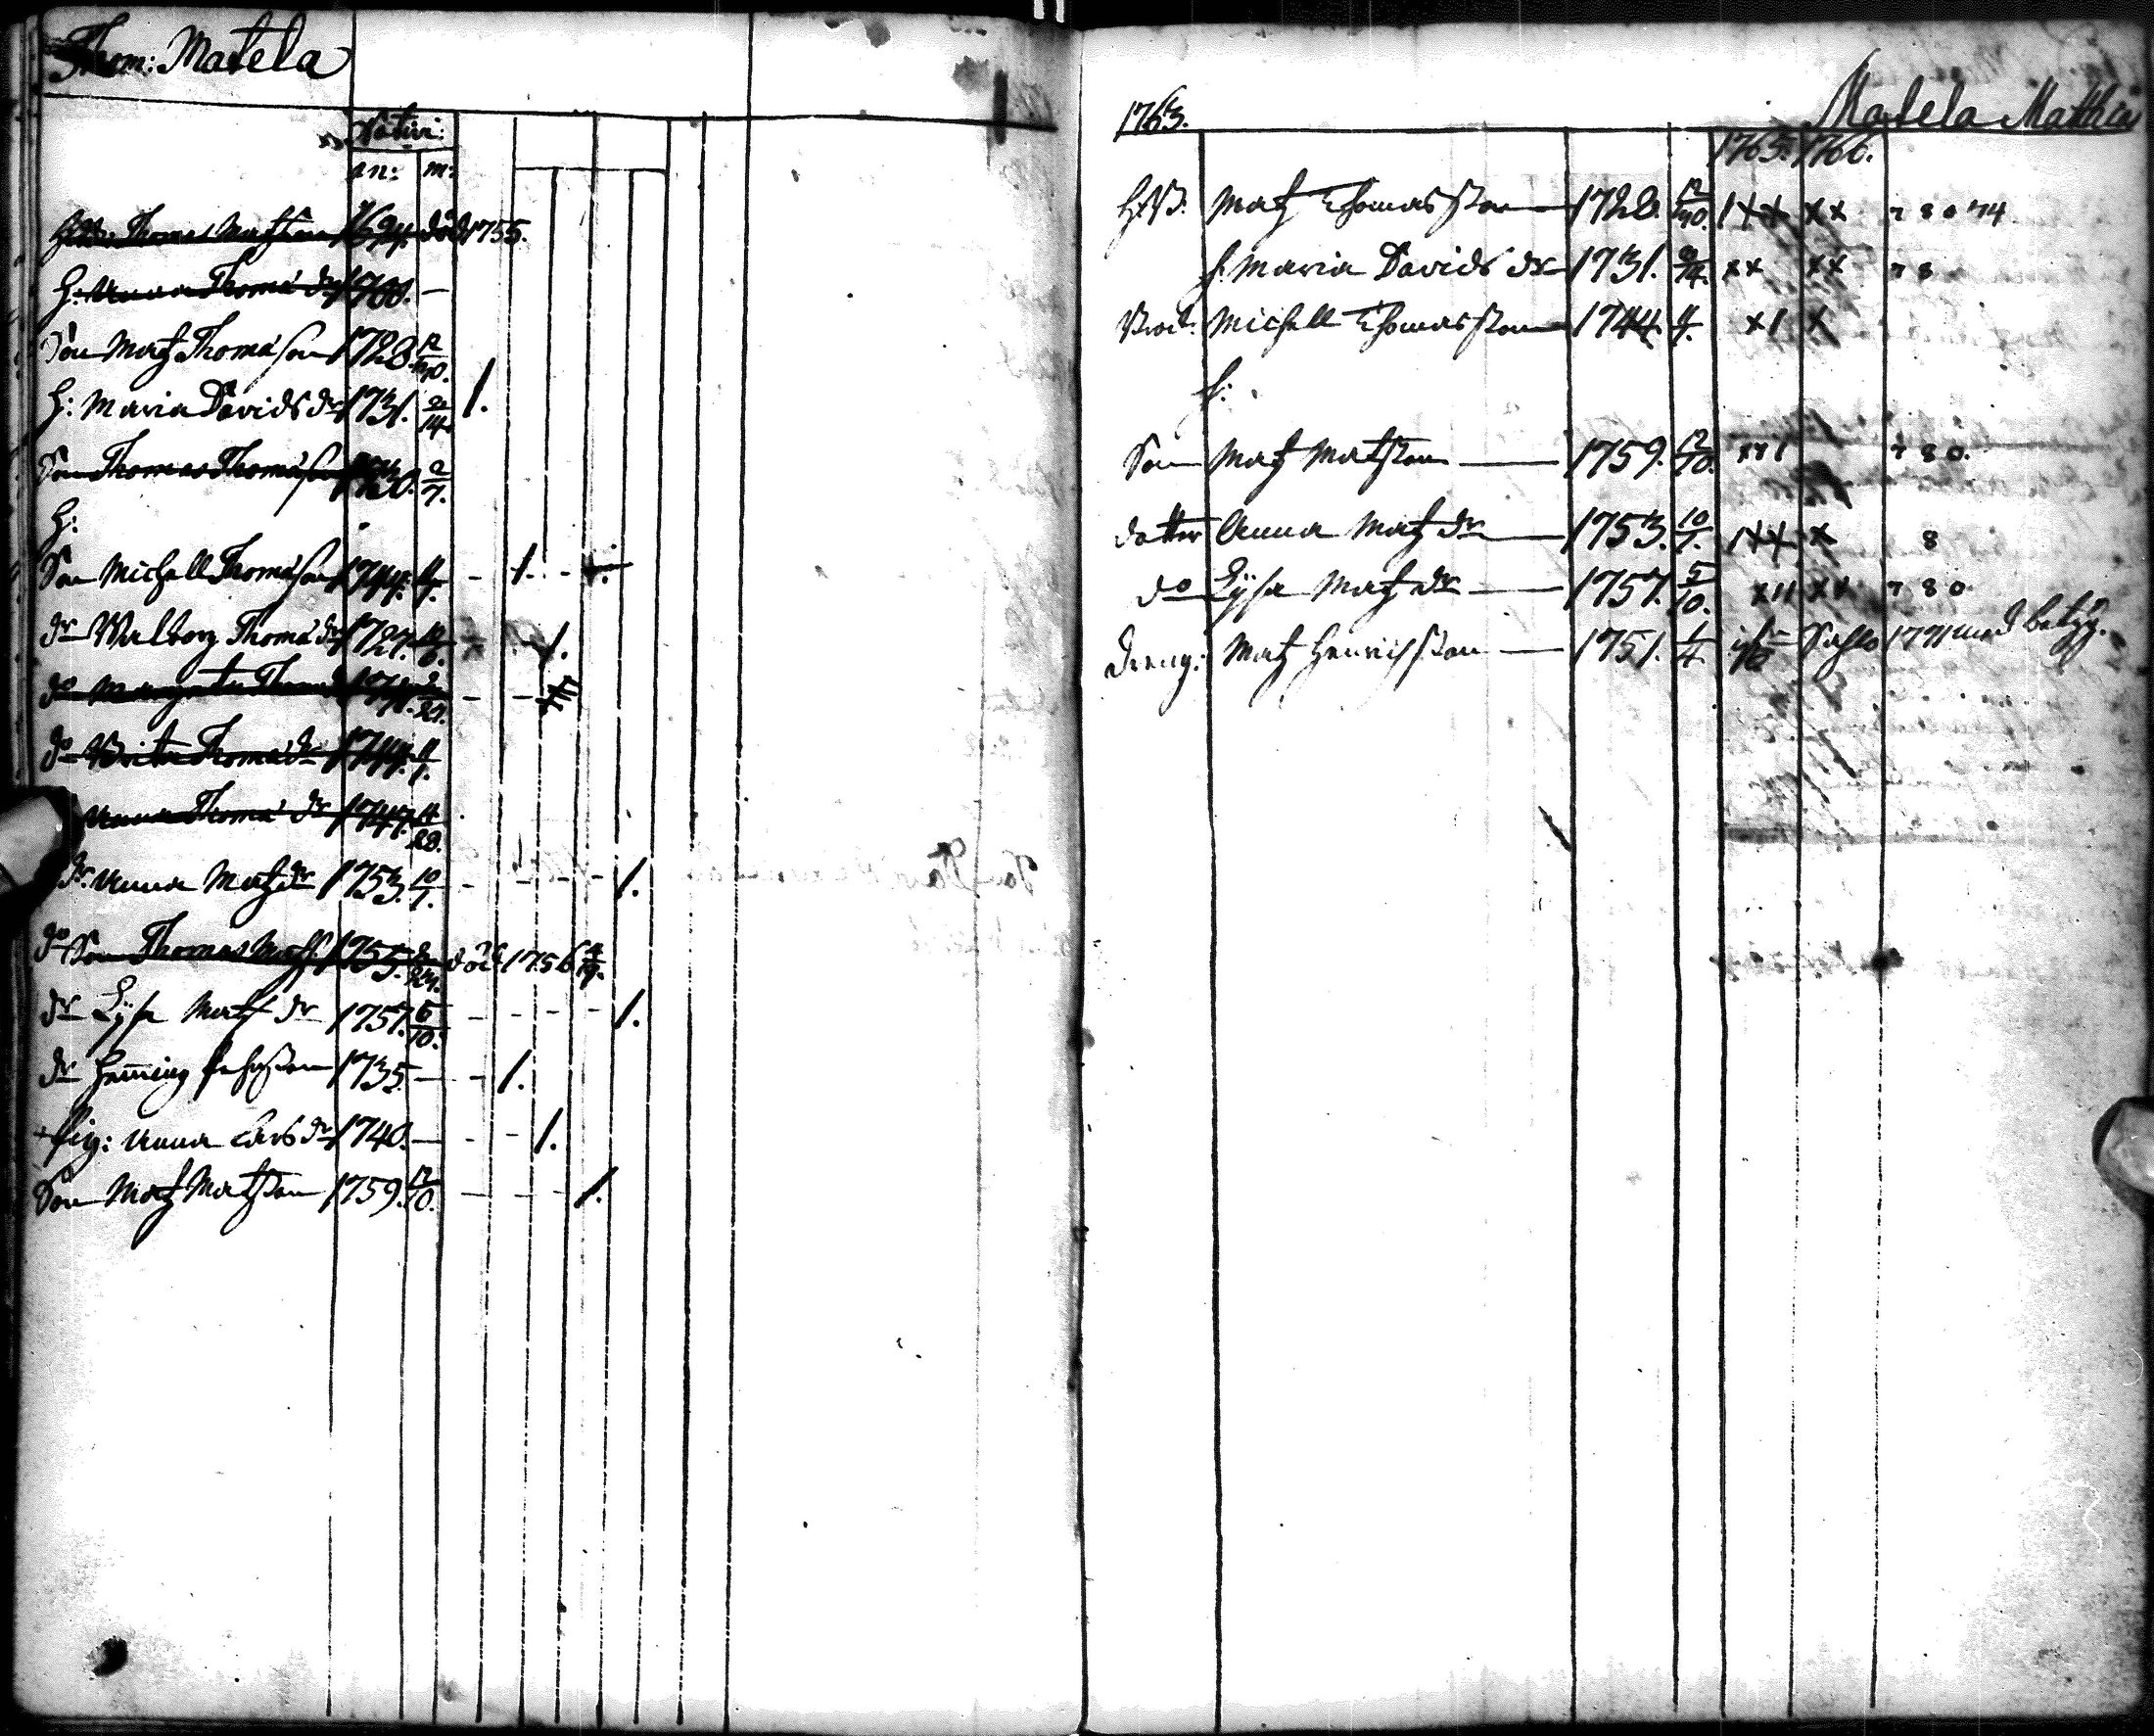 Thom: Matela
Nativi:
an: m:
Thomas Matsson 1694. död 1755.
H: Anna Thomæ dr 1700. —
Son Matz Thomasson 1728. 12/
H: Maria Davids dr 1731. 2/14. 1.
Son Thomas Thomasson 2/7.
H:
Son Michell Thomasson 1744. - 1. -
dr Walborg Thomæ dr 1727. - 1.
do Margreta Thomæ - -
do Brita Thomæ dr 1744.
Anna Thomæ dr 1747.
dr. Anna Matz dr 1753. 10/1. - - - - 1.
do Son Thomas Mats. 1755. död 1756 4/19.
dr Lijsa Matz dr 1757. 5/10. - - - - 1.
dr Hemming 1735. — - 1.
+ Pig: Anna Lars dr 1740. — - - 1.
Son Matz Matsson 1759. 12/10. - - - 1.
1763. Matela Matthia
1765. 1766.
Matz Thomasson — 1728. 12/ 1++ ×× 7 8 0 74.
h. Maria Davids dr — 1731. 2/14. ×× ×× 7 8
Brod. Michell Thomasson — 1744. ×1 ×
h:
Son Matz Matsson — 1759. 12/10. ××1 7 8 0.
dotter Anna Matz dr — 1753. 10/1. 1++ × 8
do Lijsa Matz dr — 1757. 5/10. ×11 ×× 7 8 0
dreng: Matz Henrichsson — 1751. 1/4 Sahlo 1771 med betyg.